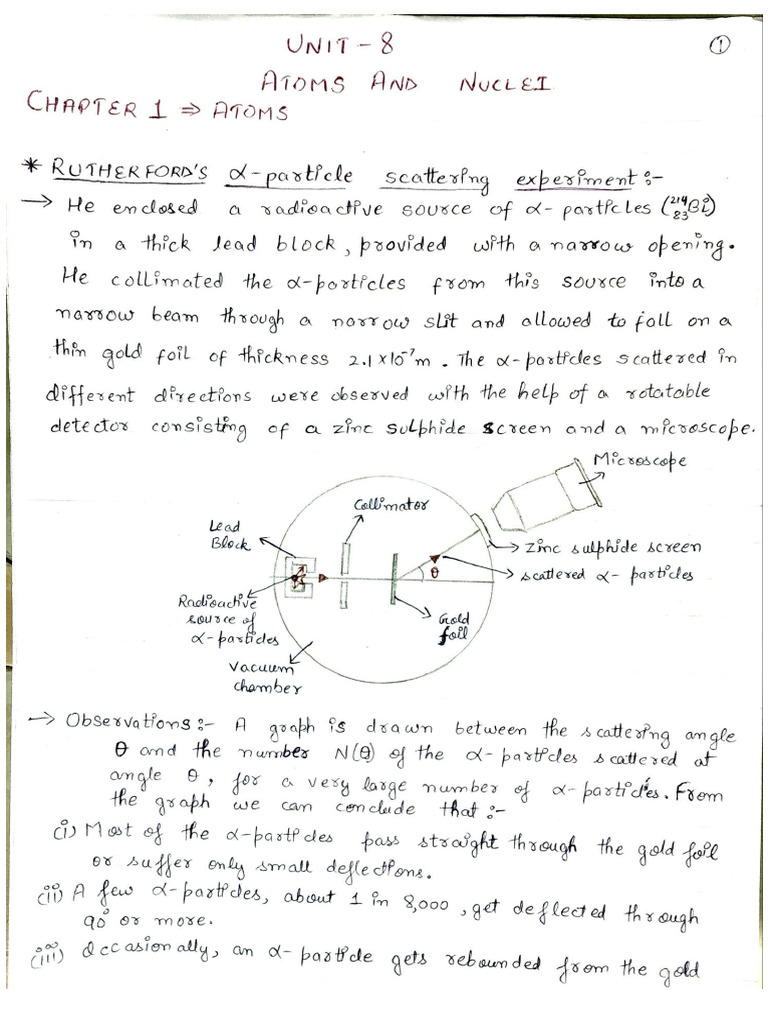 UNIT-8
①
ATOMS AND NUCLEI
CHAPTER 1 ⇒ ATOMS
* RUTHERFORD'S α-particle scattering experiment:-
→ He enclosed a radioactive source of α-particles (²¹⁴₈₃Bi)
in a thick lead block, provided with a narrow opening.
He collimated the α-particles from this source into a
narrow beam through a narrow slit and allowed to fall on a
thin gold foil of thickness 2.1×10⁻⁷m. The α-particles scattered in
different directions were observed with the help of a rotatable
detector consisting of a zinc sulphide screen and a microscope.
Microscope
Collimator
Lead
Block
Zinc sulphide screen
scattered α-particles
θ
Radioactive
source of
α-particles
Gold
foil
Vacuum
chamber
→ Observations:- A graph is drawn between the scattering angle
θ and the number N(θ) of the α-particles scattered at
angle θ, for a very large number of α-particles. From
the graph we can conclude that:-
(i) Most of the α-particles pass straight through the gold foil
or suffer only small deflections.
(ii) A few α-particles, about 1 in 8,000, get deflected through
90° or more.
(iii) Occasionally, an α-particle gets rebounded from the gold